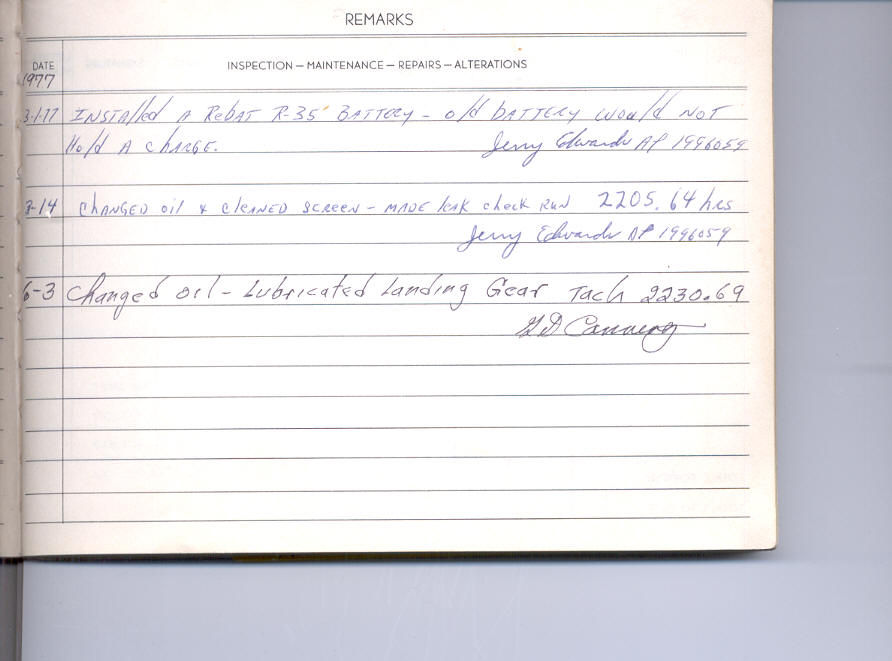 REMARKS
DATE INSPECTION — MAINTENANCE — REPAIRS — ALTERATIONS
1977
3-1-77 INSTAlled A ReBAT R-35 BATTERY - old BATTERY would NOT
Hold A chARGE. Jerry Edwards AP 1996059
3-14 chANGED oil & clEANED SCREEN - MADE leak check RUN 2205.64 hrs
Jerry Edwards AP 1996059
6-3 Changed oil - Lubricated Landing Gear Tach 2230.69